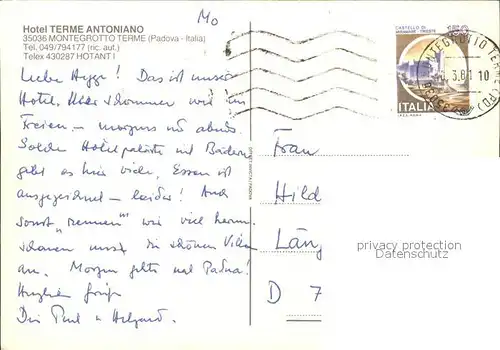 Mo
Hotel TERME ANTONIANO
35036 MONTEGROTTO TERME (Padova - Italia)
Tel. 049/794177 (ric. aut.)
Telex 430287 HOTANT I
Liebe Hegge! Das ist unser
Hotel. Hier schwimmen wir im
Freien – morgens und abends.
Solche Hotelpaläste mit Bädern
gibt es hier viele, Essen ist
ausgezeichnet – leider! Auch
sonst "rennen" wir viel herum,
schauen uns die schönen Villen
an. Morgen geht's nach Padua!
Herzliche Grüße
Dein Paul u. Helgard.
CASTELLO DI
MIRAMARE - TRIESTE
ITALIA
MONTEGROTTO TERME (PD)
Frau
Hild
Läng
D 7
privacy protection
Datenschutz